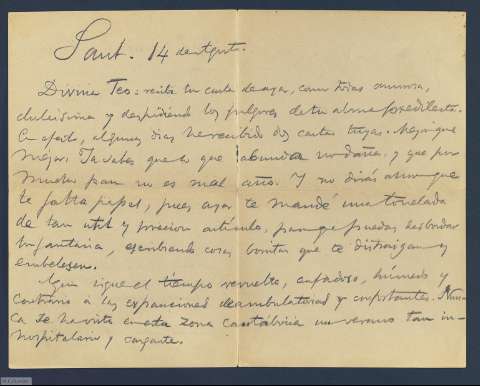 Sant. 14 de Agosto.
Divina Teo: recibí tu carta de ayer, como todas mimosa,
dulcísima y despidiendo los fulgores de tu alma predilecta.
En efecto, algunos días he recibido dos cartas tuyas. Mejor que
mejor. Ya sabes que lo que abunda no daña, y que por
mucho pan no es mal año. Y no dirás ahora que
te falta papel, pues ayer te mandé una tonelada
de tan útil y precioso artículo, para que puedas desbordar
tu fantasía, escribiendo cosas bonitas que te distraigan y
embelesen.
Aquí sigue el tiempo revuelto, enfadoso, húmedo y
contrario a las expansiones deambulatorias y confortantes. Nun-
ca se ha visto en esta zona cantábrica un verano tan in-
hospitalario y cargante.